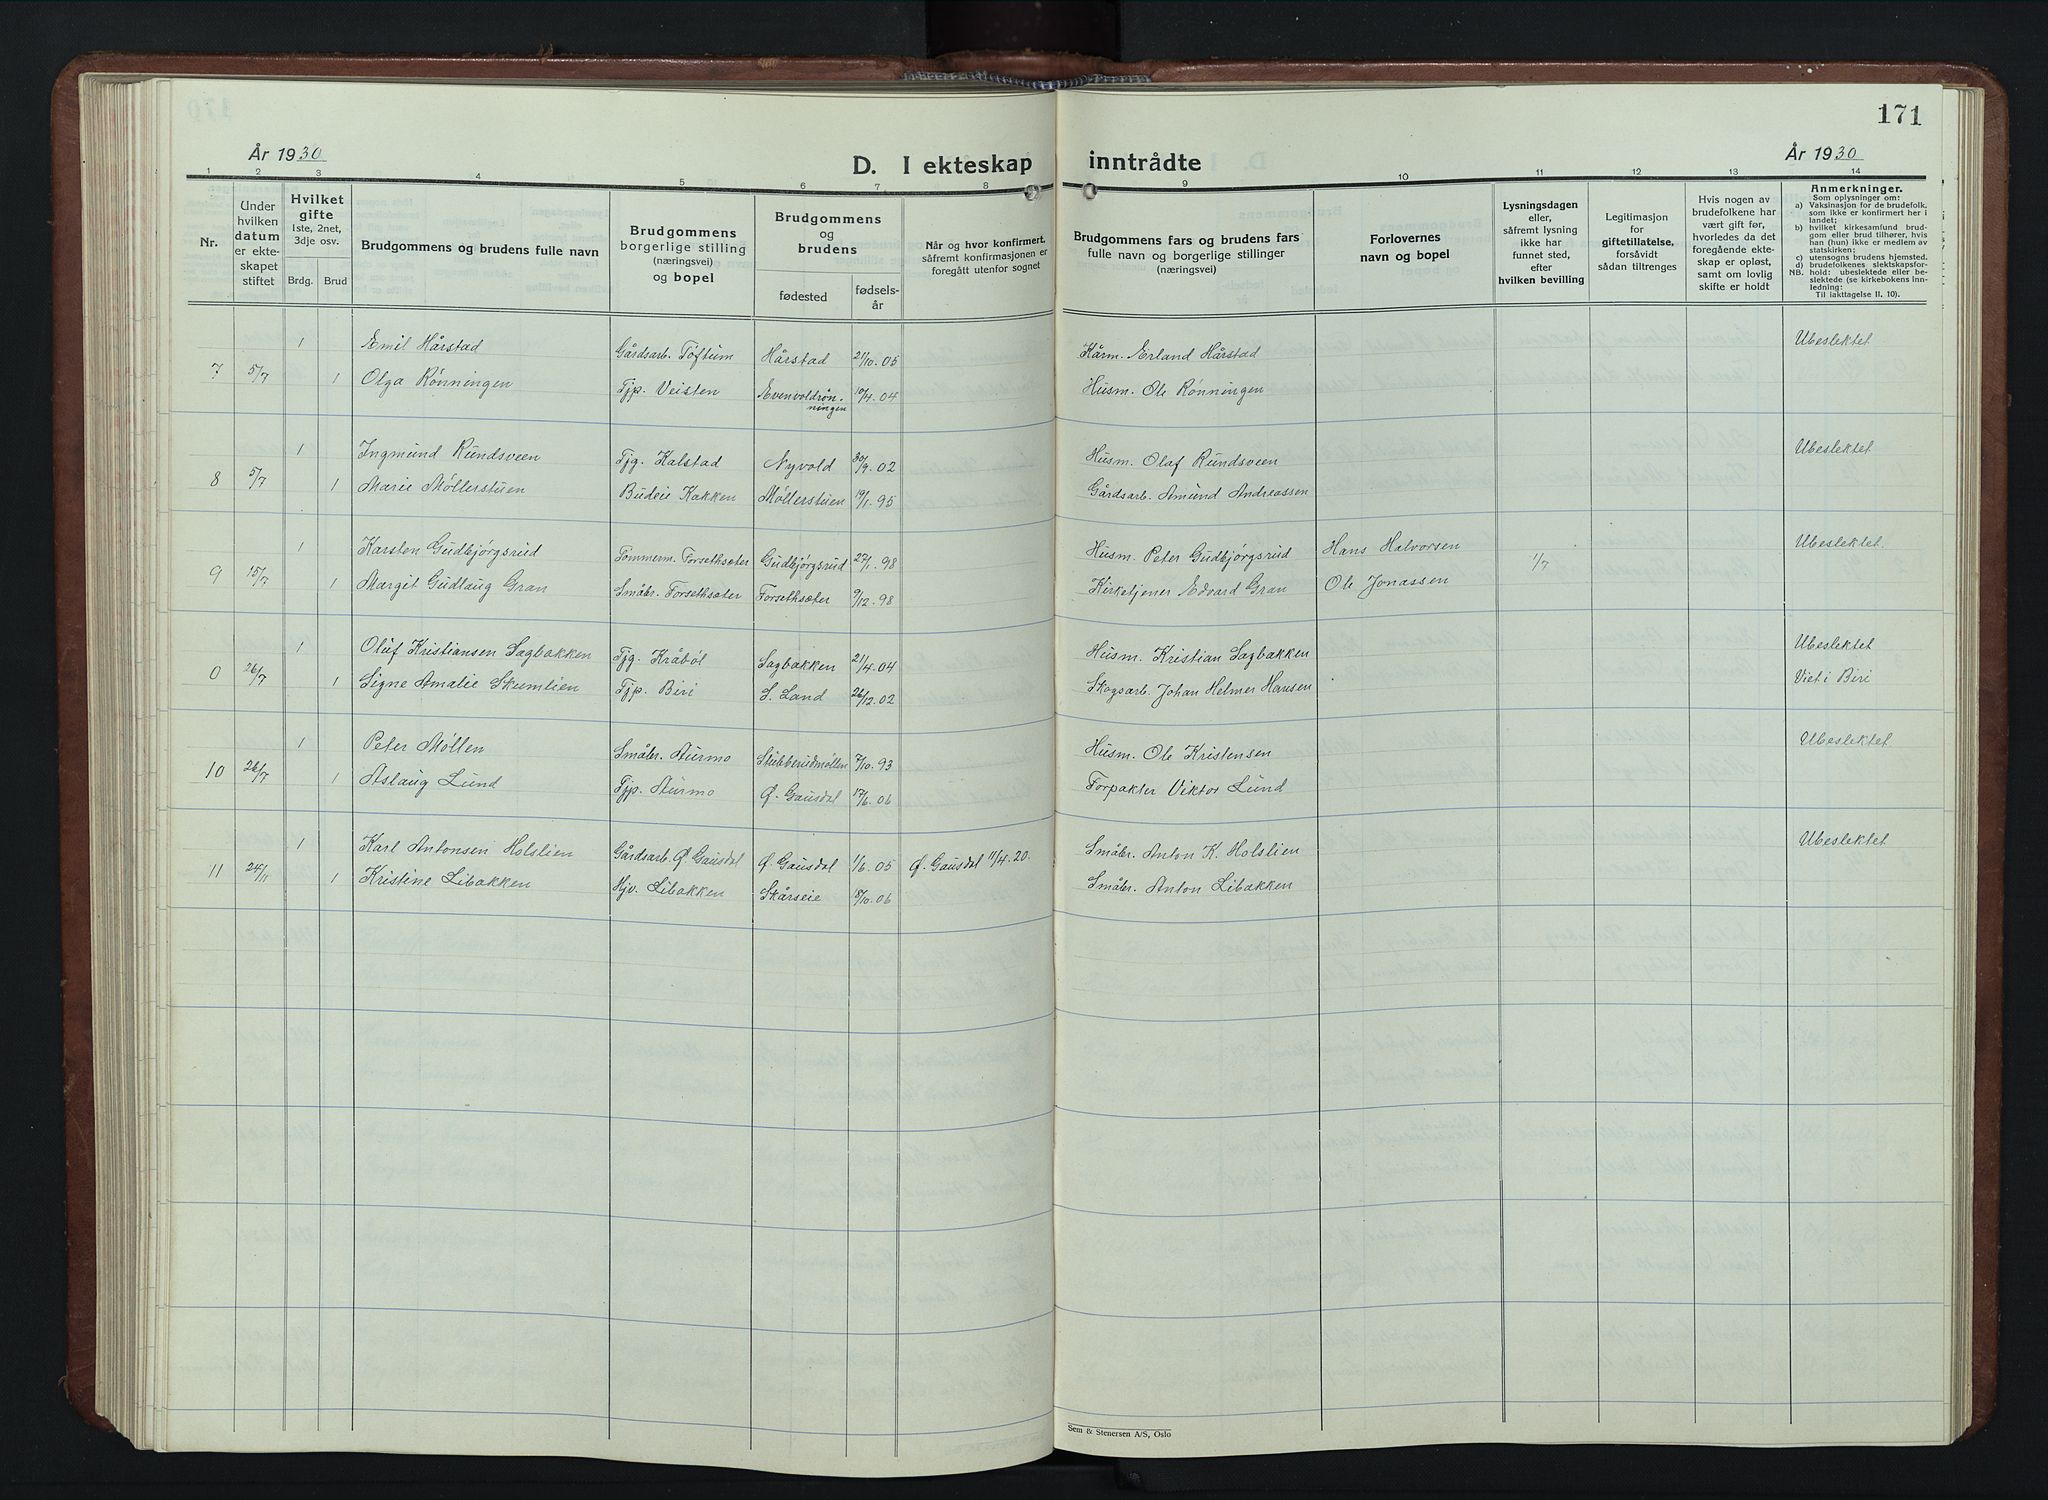 171
År 1930
D. I ekteskap inntrådte
År 1930
1 2 3 4 5 6 7 8 9 10 11 12 13 14
Nr.
Under hvilken datum er ekteskapet stiftet
Hvilket gifte 1ste, 2net, 3dje osv.
Brdg. Brud
Brudgommens og brudens fulle navn
Brudgommens borgerlige stilling (næringsvei) og bopel
Brudgommens og brudens
fødested
fødsels-år
Når og hvor konfirmert, såfremt konfirmasjonen er foregått utenfor sognet
Brudgommens fars og brudens fars fulle navn og borgerlige stillinger (næringsvei)
Forlovernes navn og bopel
Lysningsdagen eller, såfremt lysning ikke har funnet sted, efter hvilken bevilling
Legitimasjon for giftetillatelse, forsåvidt sådan tiltrenges
Hvis nogen av brudefolkene har vært gift før, hvorledes da det foregående ekteskap er opløst, samt om lovlig skifte er holdt
Anmerkninger.
Som oplysninger om:
a) Vaksinasjon for de brudefolk, som ikke er konfirmert her i landet;
b) hvilket kirkesamfund brudgom eller brud tilhører, hvis han (hun) ikke er medlem av statskirken;
c) utensogns brudens hjemsted.
d) brudefolkenes slektskapsforhold: ubeslektede eller beslektede (se kirkebokens innledning:
NB.
Til iakttagelse II. 10).
1 Emil Hårstad Gårdsarb. Töftum Hårstad 21/10.05 Kårm. Erland Hårstad Ubeslektet
7 5/7 1 Olga Rønningen Tjp. Veisten Evenvoldrönningen 10/4.04 Husm. Ole Rønningen
1 Ingmund Rundsveen Tjg. Kalstad Nyvold 30/9.02 Husm. Olaf Rundsveen Ubeslektet
8 5/7 1 Marie Møllerstuen Budeie Kakken Møllerstuen 19/1.95 Gårdsarb. Amund Andreassen
1 Karsten Gudbjørgsrud Tömmerm. Forsethsæter Gudbjørgsrud 27/1.98 Husm. Peter Gudbjørgsrud Hans Halvorsen 1/7 Ubeslektet.
9 15/7 1 Margit Gudlaug Gran Småbr. Forsethsæter Forsethsæter 9/12.98 Kirketjener Edvard Gran Ole Jonassen
1 Oluf Kristiansen Sagbakken Tjg. Kråböl Sagbakken 21/4.04 Husm. Kristian Sagbakken Ubeslektet
0 26/7 1 Signe Amalie Skumlien Tjp. Biri S. Land 26/12.02 Skogsarb. Johan Helmer Hansen Viet i Biri
1 Peter Møllen Småbr. Aurmo Stubberudmøllen 7/10.93 Husm. Ole Kristensen Ubeslektet
10 26/7 1 Aslaug Lund Tjp. Aurmo Ø. Gausdal 17/6.06 Forpakter Viktor Lund
1 Karl Antonsen Holslien Gårdsarb. Ø. Gausdal Ø. Gausdal 1/6.05 Ø. Gausdal 11/4.20. Småbr. Anton K. Holslien Ubeslektet
11 24/11 1 Kristine Libakken Hjv. Libakken Skårseie 18/10.06 Småbr. Anton Libakken
Sem & Stenersen A/S, Oslo